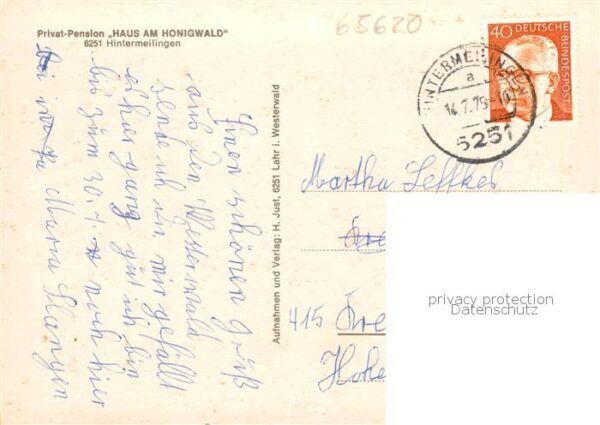 Privat-Pension „HAUS AM HONIGWALD"
6251 Hintermeilingen
65620
Einen schönen Gruß
aus den Westerwald
sende ich ein mir gefällt
es hier ganz gut ich bin
bis zum 30.7. noch hier
Maria Slangen
Aufnahmen und Verlag: H. Just, 6251 Lahr i. Westerwald
40
DEUTSCHE
BUNDESPOST
HINTERMEILINGEN
a
14.7.75
6251
Martha Leffkes
415 Kre
Hohe
privacy protection
Datenschutz